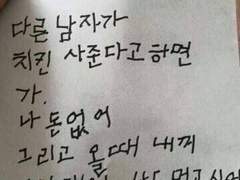 다른 남자가
치킨 사준다고 하면
가.
나 돈 없어
그리고 올때 내꺼